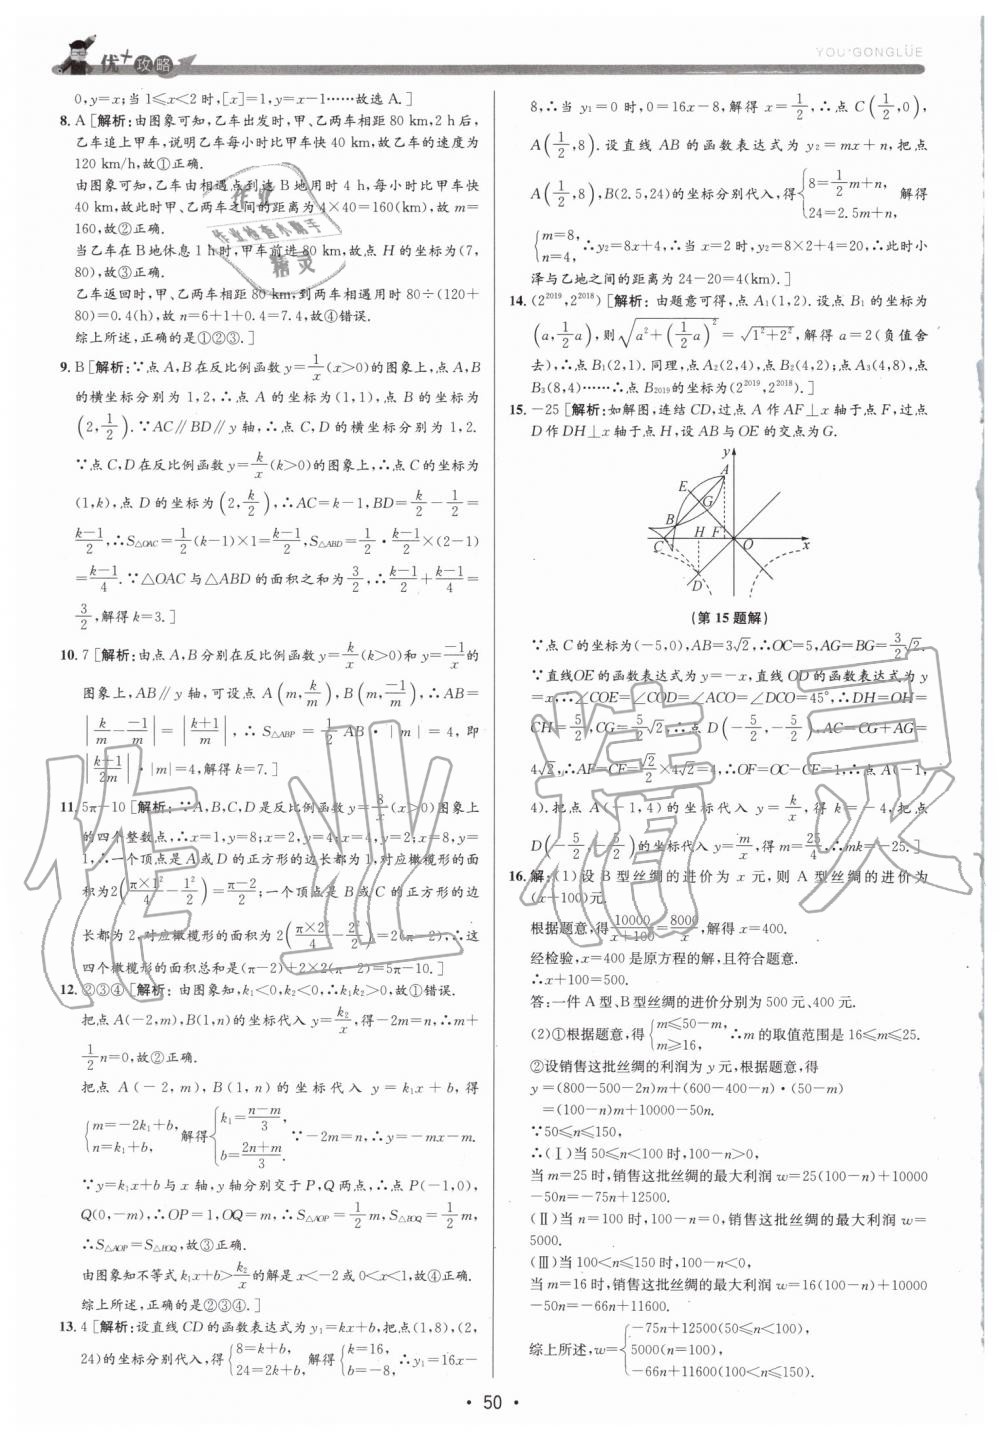 优+攻略
YOU+GONGLÜE
0,y=x;当 1≤x<2 时,[x]=1,y=x-1……故选 A.]
8. A [解析:由图象可知,乙车出发时,甲、乙两车相距 80 km,2 h 后,
乙车追上甲车,说明乙车每小时比甲车快 40 km,故乙车的速度为
120 km/h,故①正确.
由图象可知,乙车由相遇点到达 B 地用时 4 h,每小时比甲车快
40 km,故此时甲、乙两车之间的距离为 4×40=160(km),故 m=
160,故②正确.
当乙车在 B 地休息 1 h 时,甲车前进 80 km,故点 H 的坐标为(7,
80),故③正确.
乙车返回时,甲、乙两车相距 80 km,到两车相遇用时 80÷(120+
80)=0.4(h),故 n=6+1+0.4=7.4,故④错误.
综上所述,正确的是①②③.]
9. B [解析:∵点 A,B 在反比例函数 y=1/x(x>0)的图象上,点 A,B
的横坐标分别为 1,2,∴点 A 的坐标为(1,1),点 B 的坐标为
(2,1/2).∵AC∥BD∥y 轴,∴点 C,D 的横坐标分别为 1,2.
∵点 C,D 在反比例函数 y=k/x(k>0)的图象上,∴点 C 的坐标为
(1,k),点 D 的坐标为(2,k/2),∴AC=k-1,BD=k/2-1/2=
(k-1)/2,∴S△OAC=1/2(k-1)×1=(k-1)/2,S△ABD=1/2·(k-1)/2×(2-1)
=(k-1)/4.∵△OAC 与△ABD 的面积之和为3/2,∴(k-1)/2+(k-1)/4=
3/2,解得 k=3.]
10. 7 [解析:由点 A,B 分别在反比例函数 y=k/x(k>0)和 y=-1/x的
图象上,AB∥y 轴,可设点 A(m,k/m),B(m,-1/m),∴AB=
|k/m-(-1)/m|=|(k+1)/m|,∴S△ABP=1/2AB·|m|=4,即
|(k+1)/2m|·|m|=4,解得 k=7.]
11. 5π-10 [解析:∵A,B,C,D 是反比例函数 y=8/x(x>0)图象上
的四个整数点,∴x=1,y=8;x=2,y=4;x=4,y=2;x=8,y=
1,∴一个顶点是 A 或 D 的正方形的边长都为 1,对应橄榄形的面
积为 2(π×1²/4-1²/2)=(π-2)/2;一个顶点是 B 或 C 的正方形的边
长都为 2,对应橄榄形的面积为 2(π×2²/4-2²/2)=2(π-2),∴这
四个橄榄形的面积总和是(π-2)+2×2(π-2)=5π-10.]
12. ②③④ [解析:由图象知,k₁<0,k₂<0,∴k₁k₂>0,故①错误.
把点 A(-2,m),B(1,n)的坐标代入 y=k₂/x,得-2m=n,∴m+
1/2n=0,故②正确.
把点 A(-2,m),B(1,n)的坐标代入 y=k₁x+b,得
{m=-2k₁+b, n=k₁+b, 解得{k₁=(n-m)/3, b=(2n+m)/3. ∵-2m=n,∴y=-mx-m.
∵y=k₁x+b 与 x 轴,y 轴分别交于 P,Q 两点,∴点 P(-1,0),
Q(0,-m),∴OP=1,OQ=m,∴S△AOP=1/2m,S△BOQ=1/2m,
∴S△AOP=S△BOQ,故③正确.
由图象知不等式 k₁x+b>k₂/x的解是 x<-2 或 0<x<1,故④正确.
综上所述,正确的是②③④.]
13. 4 [解析:设直线 CD 的函数表达式为 y₁=kx+b,把点(1,8),(2,
24)的坐标分别代入,得{8=k+b, 24=2k+b, 解得{k=16, b=-8, ∴y₁=16x-
8,∴当 y₁=0 时,0=16x-8,解得 x=1/2,∴点 C(1/2,0),
A(1/2,8).设直线 AB 的函数表达式为 y₂=mx+n,把点
A(1/2,8),B(2.5,24)的坐标分别代入,得{8=1/2m+n, 24=2.5m+n, 解得
{m=8, n=4, ∴y₂=8x+4,∴当 x=2 时,y₂=8×2+4=20,∴此时小
泽与乙地之间的距离为 24-20=4(km).]
14. (2²⁰¹⁹,2²⁰¹⁸) [解析:由题意可得,点 A₁(1,2).设点 B₁ 的坐标为
(a,1/2a),则√(a²+(1/2a)²)=√(1²+2²),解得 a=2(负值舍
去),∴点 B₁(2,1).同理,点 A₂(2,4),点 B₂(4,2);点 A₃(4,8),点
B₃(8,4)……∴点 B₂₀₁₉的坐标为(2²⁰¹⁹,2²⁰¹⁸).]
15. -25 [解析:如解图,连结 CD,过点 A 作 AF⊥x 轴于点 F,过点
D 作 DH⊥x 轴于点 H,设 AB 与 OE 的交点为 G.
y
A
E
G
B
H F
C O x
D
(第 15 题解)
∵点 C 的坐标为(-5,0),AB=3√2,∴OC=5,AG=BG=3/2√2.
∵直线 OE 的函数表达式为 y=-x,直线 OD 的函数表达式为 y
=x,∴∠COE=∠COD=∠ACO=∠DCO=45°,∴DH=OH=
CH=5/2,CG=5/2√2,∴点 D(-5/2,-5/2),AC=CG+AG=
4√2,∴AF=CF=√2/2×4√2=4,∴OF=OC-CF=1,∴点 A(-1,
4).把点 A(-1,4)的坐标代入 y=k/x,得 k=-4,把点
D(-5/2,-5/2)的坐标代入 y=m/x,得 m=25/4,∴mk=-25.]
16. 解:(1)设 B 型丝绸的进价为 x 元,则 A 型丝绸的进价为
(x+100)元.
根据题意,得10000/(x+100)=8000/x,解得 x=400.
经检验,x=400 是原方程的解,且符合题意.
∴x+100=500.
答:一件 A 型、B 型丝绸的进价分别为 500 元、400 元.
(2)①根据题意,得{m≤50-m, m≥16, ∴m 的取值范围是 16≤m≤25.
②设销售这批丝绸的利润为 y 元,根据题意,得
y=(800-500-2n)m+(600-400-n)·(50-m)
=(100-n)m+10000-50n.
∵50≤n≤150,
∴(Ⅰ)当 50≤n<100 时,100-n>0,
当 m=25 时,销售这批丝绸的最大利润 w=25(100-n)+10000
-50n=-75n+12500.
(Ⅱ)当 n=100 时,100-n=0,销售这批丝绸的最大利润 w=
5000.
(Ⅲ)当 100<n≤150 时,100-n<0,
当 m=16 时,销售这批丝绸的最大利润 w=16(100-n)+10000
-50n=-66n+11600.
综上所述,w={-75n+12500(50≤n<100), 5000(n=100), -66n+11600(100<n≤150).
• 50 •
作业精灵
作业
作业检查小帮手
精灵